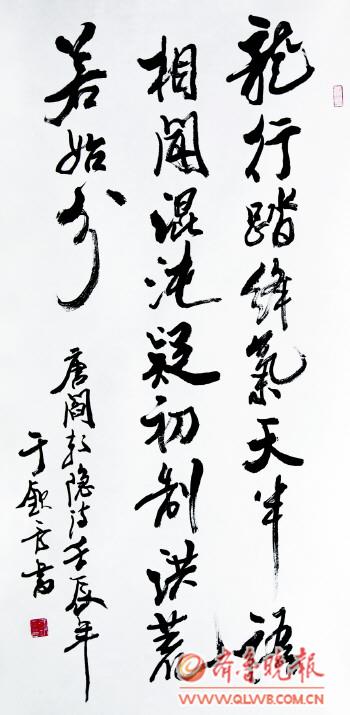 龍行踏絳氣天半語
相聞混沌疑初制洪荒
若始分
唐閻朝隐诗壬辰年
于书
齐鲁晚报
WWW.QLWB.COM.CN